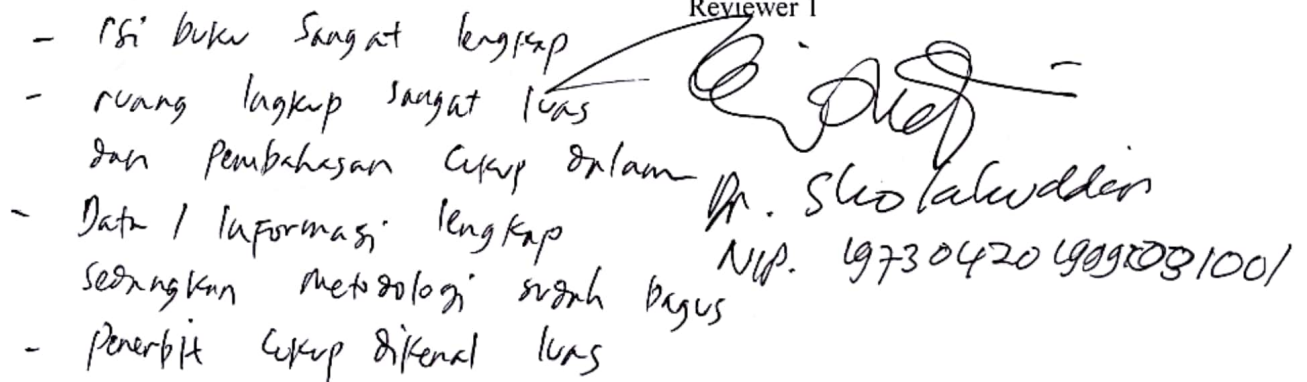 Reviewer 1
- isi buku sangat lengkap
- ruang lngkup sangat luas
dan pembahasan cukup dalam
- Data / Informasi lengkap
sedangkan metodologi sudah bagus
- penerbit cukup dikenal luas
Dr. Sholahuddin
NIP. 197304201999031001